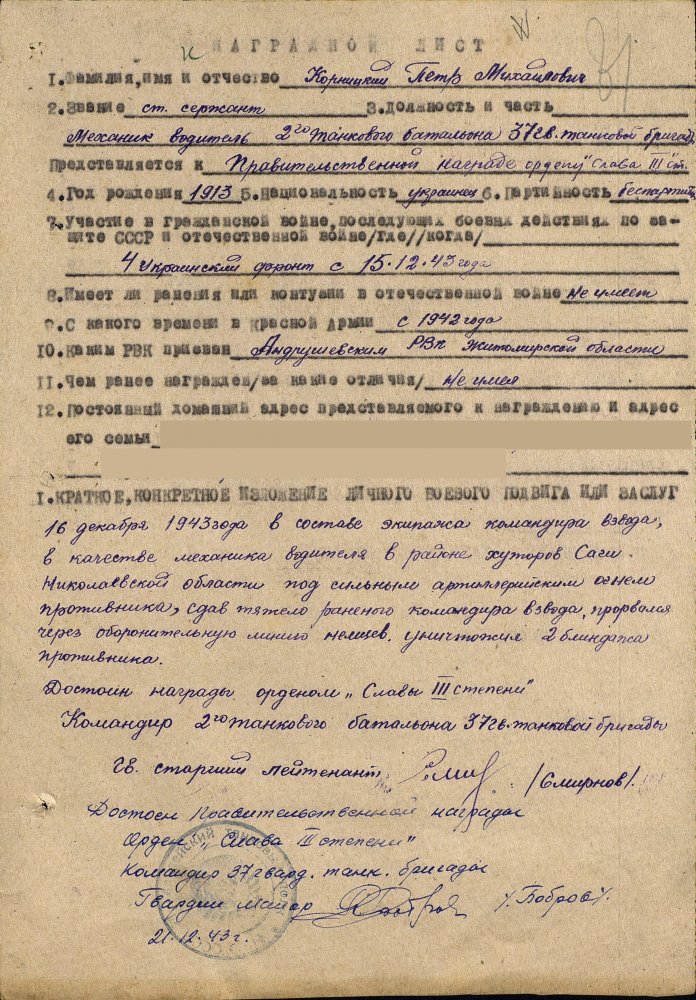 НАГРАДНОЙ ЛИСТ
1.Фамилия,имя и отчество Корницкий Петр Михайлович
2.Звание ст. сержант 3.Должность и часть
Механик водитель 2го танкового батальона 37гв. танковой бригады
Представляется к Правительственной награде ордену "Слава III ст.
4.Год рождения 1913 5.Национальность украинец 6.Партийность беспартийн
7.Участие в гражданской войне,последующих боевых действиях по за-
щите СССР и отечественной войне/где//когда/
4 Украинский фронт с 15.12.43 года
8.Имеет ли ранения или контузии в отечественной войне не имеет
9.С какого времени в Красной Армии с 1942 года
10.Каким РВК призван Андрушевским РВК Житомирской области
11.Чем ранее награжден/за какие отличия/ не имея
12.Постоянный домашний адрес представляемого к награждению и адрес
его семьи
I.КРАТКОЕ,КОНКРЕТНОЕ ИЗЛОЖЕНИЕ ЛИЧНОГО БОЕВОГО ПОДВИГА ИЛИ ЗАСЛУГ
16 декабря 1943 года в составе экипажа командира взвода,
в качестве механика водителя в районе хуторов Саги.
Николаевской области под сильным артиллерийским огнем
противника, сдав тяжело раненого командира взвода, прорвался
через оборонительную линию немцев. уничтожил 2 блиндажа
противника.
Достоин награды орденом „Славы III степени"
Командир 2го танкового батальона 37гв. танковой бригады
гв. старший лейтенант /Смирнов/.
Достоен Правительственной награды
Орден „Слава III степени"
Командир 37 гвард. танк. бригады
Гвардии майор /Бобров/.
21.12.43 г.